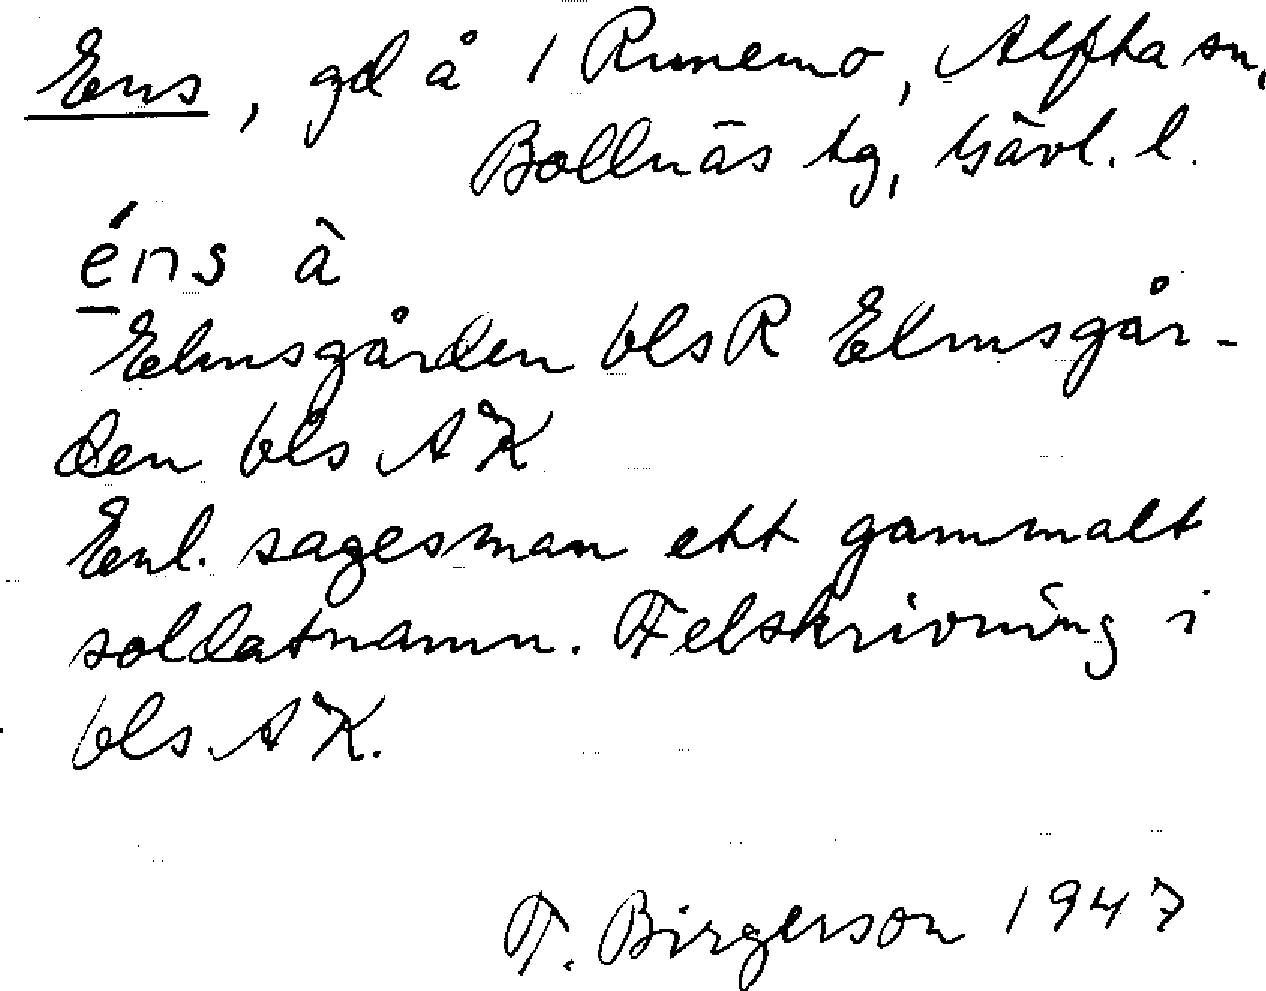 Ens, gd å 1 Runemo, Alfta sn,
Bollnäs tg, Gävl. l.
éns à
Elmsgården bls R Elmsgår-
den bls AK
Enl. sagesman ett gammalt
soldatnamn. Felskrivning i
bls AK.
T. Birgerson 1947